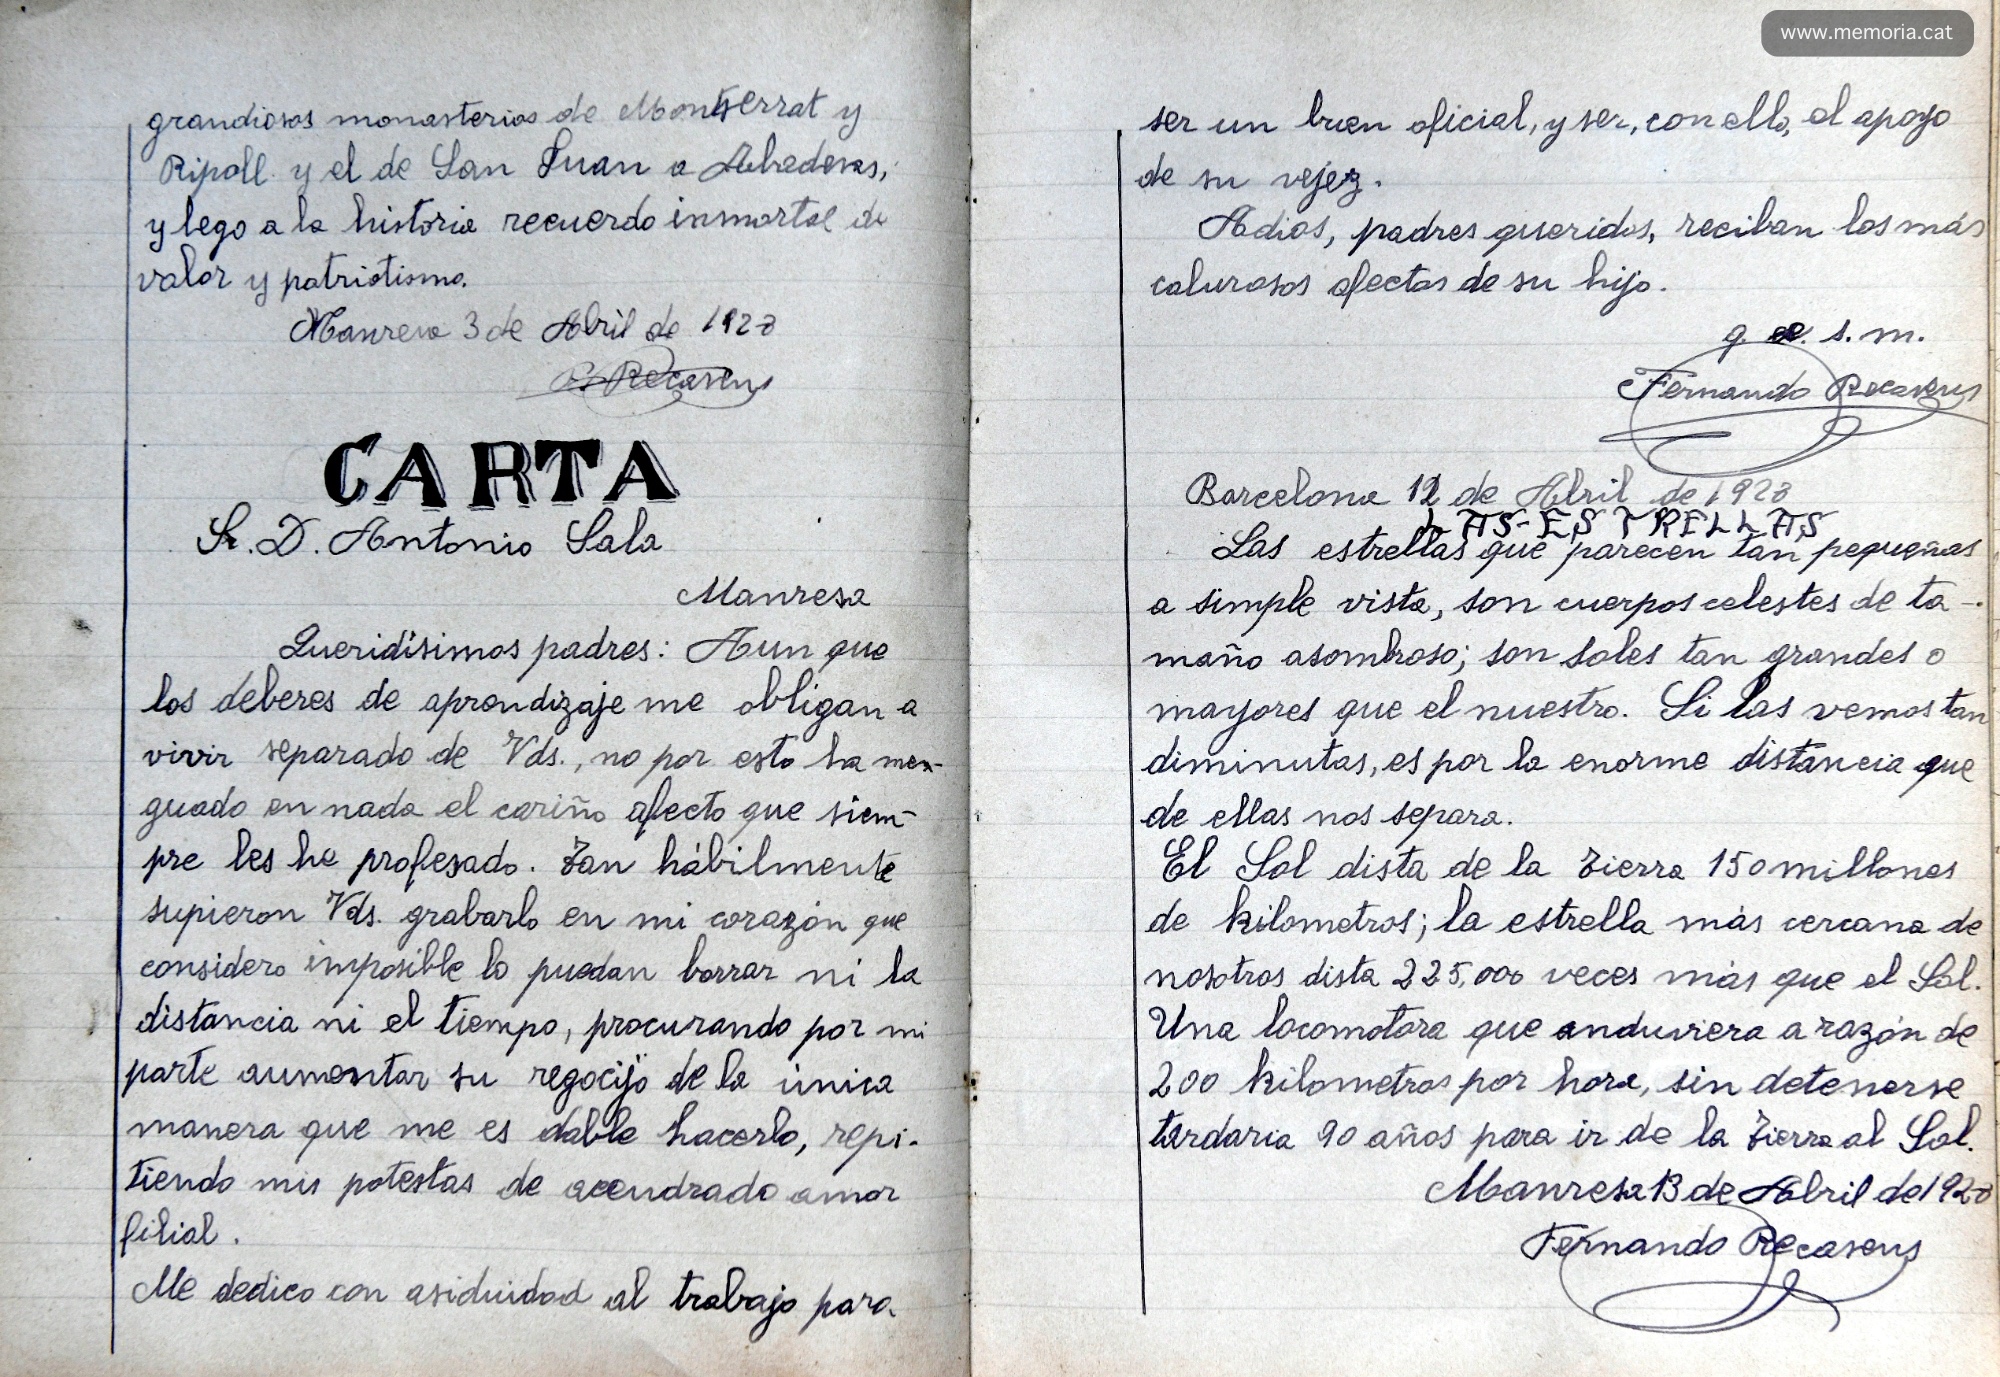 www.memoria.cat
grandiosos monasterios de Montserrat y
Ripoll y el de San Juan a Abadesas,
y lego a la historia recuerdo inmortal de
valor y patriotismo.
Manresa 3 de Abril de 1928
F. Recasens
CARTA
Sr. D. Antonio Sala
Manresa
Queridísimos padres: Aun que
los deberes de aprendizaje me obligan a
vivir separado de Vds., no por esto ha men-
guado en nada el cariño afecto que siem-
pre les he profesado. Tan hábilmente
supieron Vds. grabarlo en mi corazón que
considero imposible lo puedan borrar ni la
distancia ni el tiempo, procurando por mi
parte aumentar su regocijo de la única
manera que me es dable hacerlo, repi-
tiendo mis potestas de acendrado amor
filial.
Me dedico con asiduidad al trabajo para
ser un buen oficial, y ser, con ello, el apoyo
de su vejez.
Adios, padres queridos, reciban los más
calurosos afectos de su hijo.
q. e. s. m.
Fernando Recasens
Barcelona 12 de Abril de 1928
LAS-ESTRELLAS
Las estrellas que parecen tan pequeñas
a simple vista, son cuerpos celestes de ta-
maño asombroso; son soles tan grandes o
mayores que el nuestro. Si las vemos tan
diminutas, es por la enorme distancia que
de ellas nos separa.
El Sol dista de la Tierra 150 millones
de kilometros; la estrella más cercana de
nosotros dista 225,000 veces más que el Sol.
Una locomotora que anduviera a razón de
200 kilometros por hora, sin detenerse
tardaria 90 años para ir de la Tierra al Sol.
Manresa 13 de Abril de 1928
Fernando Recasens